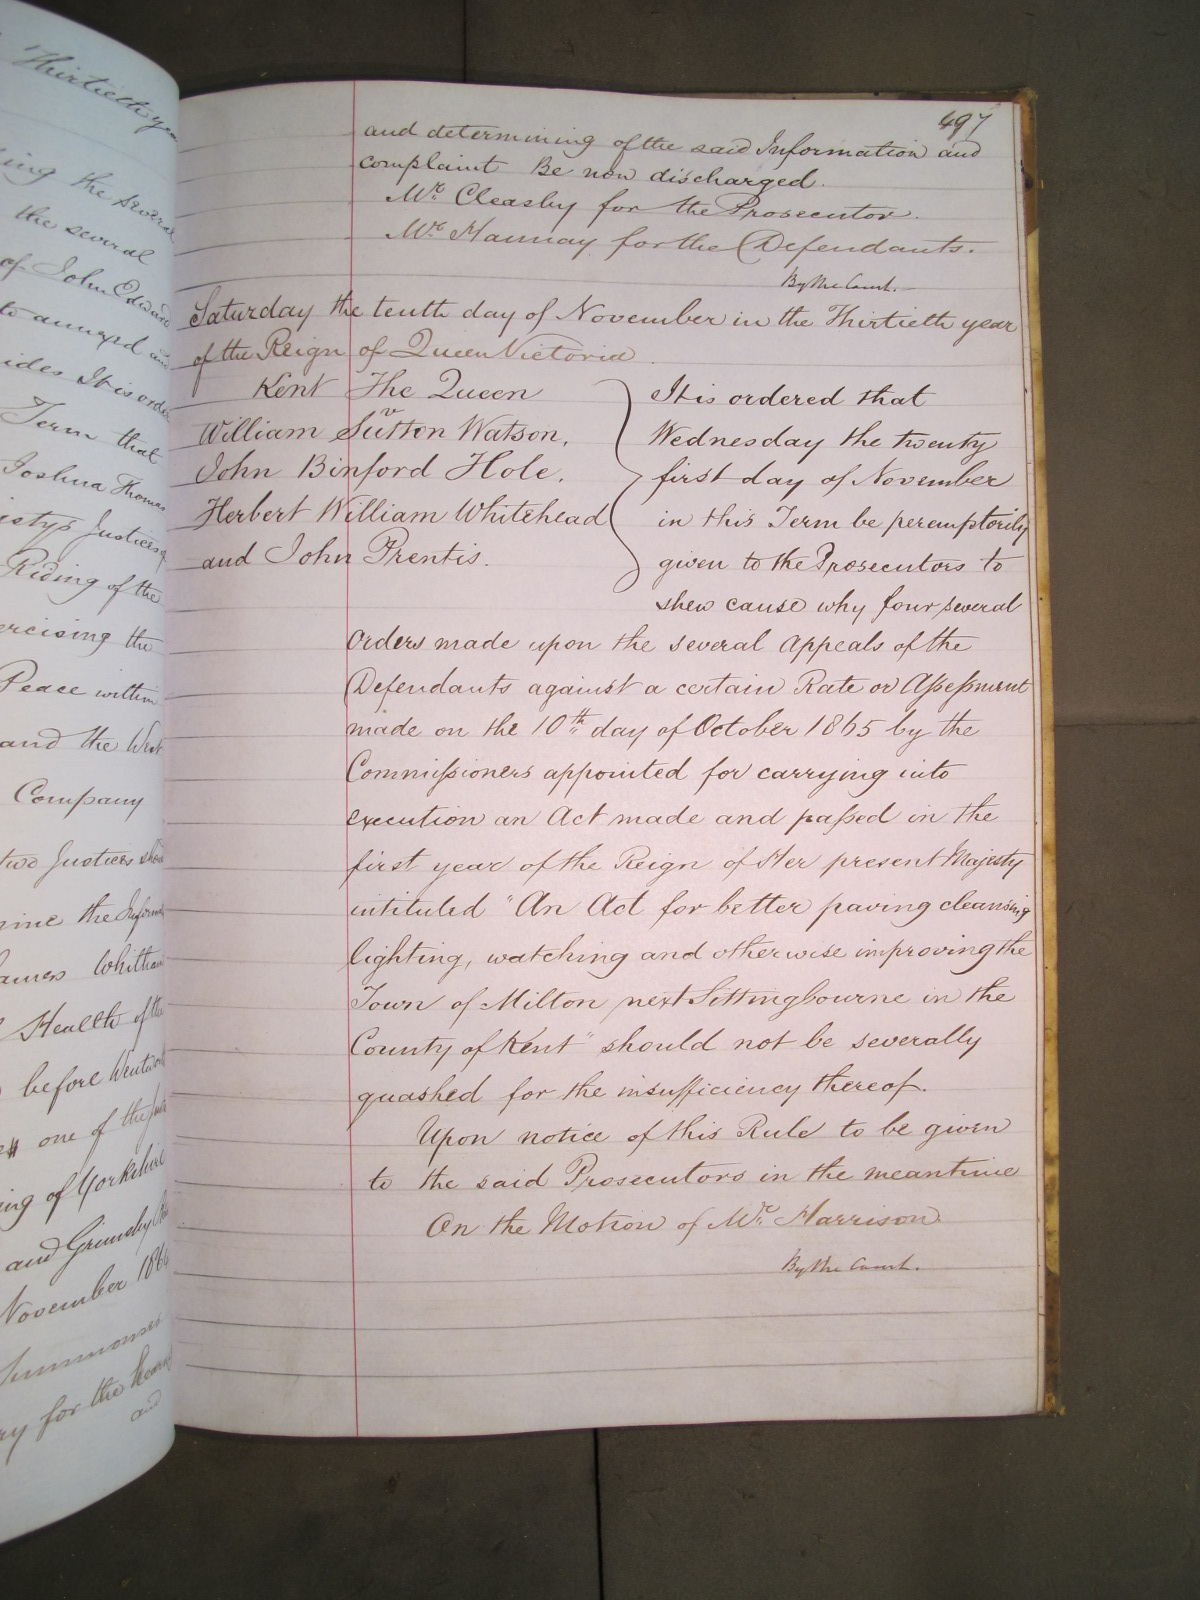 Thirtieth year
ing the several
the several
of John Edward
to annexed and
ides It is order
Term that
Joshua Thomas
esty's Justices of
Riding of the
ercising the
Peace within
and the West
Company
two Justices should
mine the Inform
James Whitham
Health of the
before Wentworth
one of the
ing of Yorkshire
and Grimsby
November 1866
Summonses
ry for the hearing
and
497
and determining of the said Information and
complaint Be now discharged.
Mr. Cleasby for the Prosecutor.
Mr. Hannay for the Defendants.
By the Court.
Saturday the tenth day of November in the Thirtieth year
of the Reign of Queen Victoria.
Kent The Queen
v
William Sutton Watson,
John Binford Hole,
Herbert William Whitehead
and John Prentis.
It is ordered that
Wednesday the twenty
first day of November
in this Term be peremptorily
given to the Prosecutors to
shew cause why four several
Orders made upon the several Appeals of the
Defendants against a certain Rate or Assessment
made on the 10th day of October 1865 by the
Commissioners appointed for carrying into
execution an Act made and passed in the
first year of the Reign of Her present Majesty
intituled "An Act for better paving cleansing
lighting, watching and otherwise improving the
Town of Milton next Sittingbourne in the
County of Kent" should not be severally
quashed for the insufficiency thereof.
Upon notice of this Rule to be given
to the said Prosecutors in the meantime
On the Motion of Mr. Harrison.
By the Court.